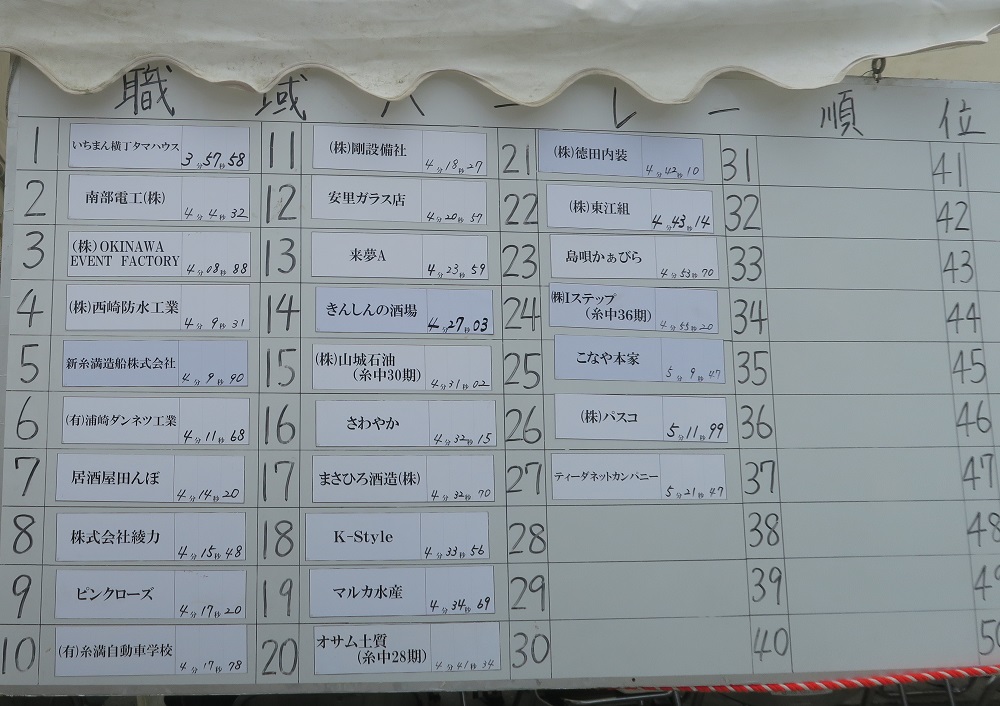 職域ハーレー順位
1 いちまん横丁タマハウス 3分57秒58
2 南部電工(株) 4分4秒32
3 (株)OKINAWA
EVENT FACTORY 4分08秒88
4 (株)西崎防水工業 4分9秒31
5 新糸満造船株式会社 4分9秒90
6 (有)浦崎ダンネツ工業 4分11秒68
7 居酒屋田んぼ 4分14秒20
8 株式会社綾力 4分15秒48
9 ピンクローズ 4分17秒20
10 (有)糸満自動車学校 4分17秒78
11 (株)剛設備社 4分18秒27
12 安里ガラス店 4分20秒57
13 来夢A 4分23秒59
14 きんしんの酒場 4分27秒03
15 (株)山城石油
(糸中30期) 4分31秒02
16 さわやか 4分32秒15
17 まさひろ酒造(株) 4分32秒70
18 K-Style 4分33秒56
19 マルカ水産 4分34秒69
20 オサム土質
(糸中28期) 4分41秒34
21 (株)徳田内装 4分42秒10
22 (株)東江組 4分43秒14
23 島唄かぁびら 4分53秒70
24 (株)Iステップ
(糸中36期) 4分53秒20
25 こなや本家 5分9秒47
26 (株)パスコ 5分11秒99
27 ティーダネットカンパニー 5分21秒47
28
29
30
31
32
33
34
35
36
37
38
39
40
41
42
43
44
45
46
47
48
49
50